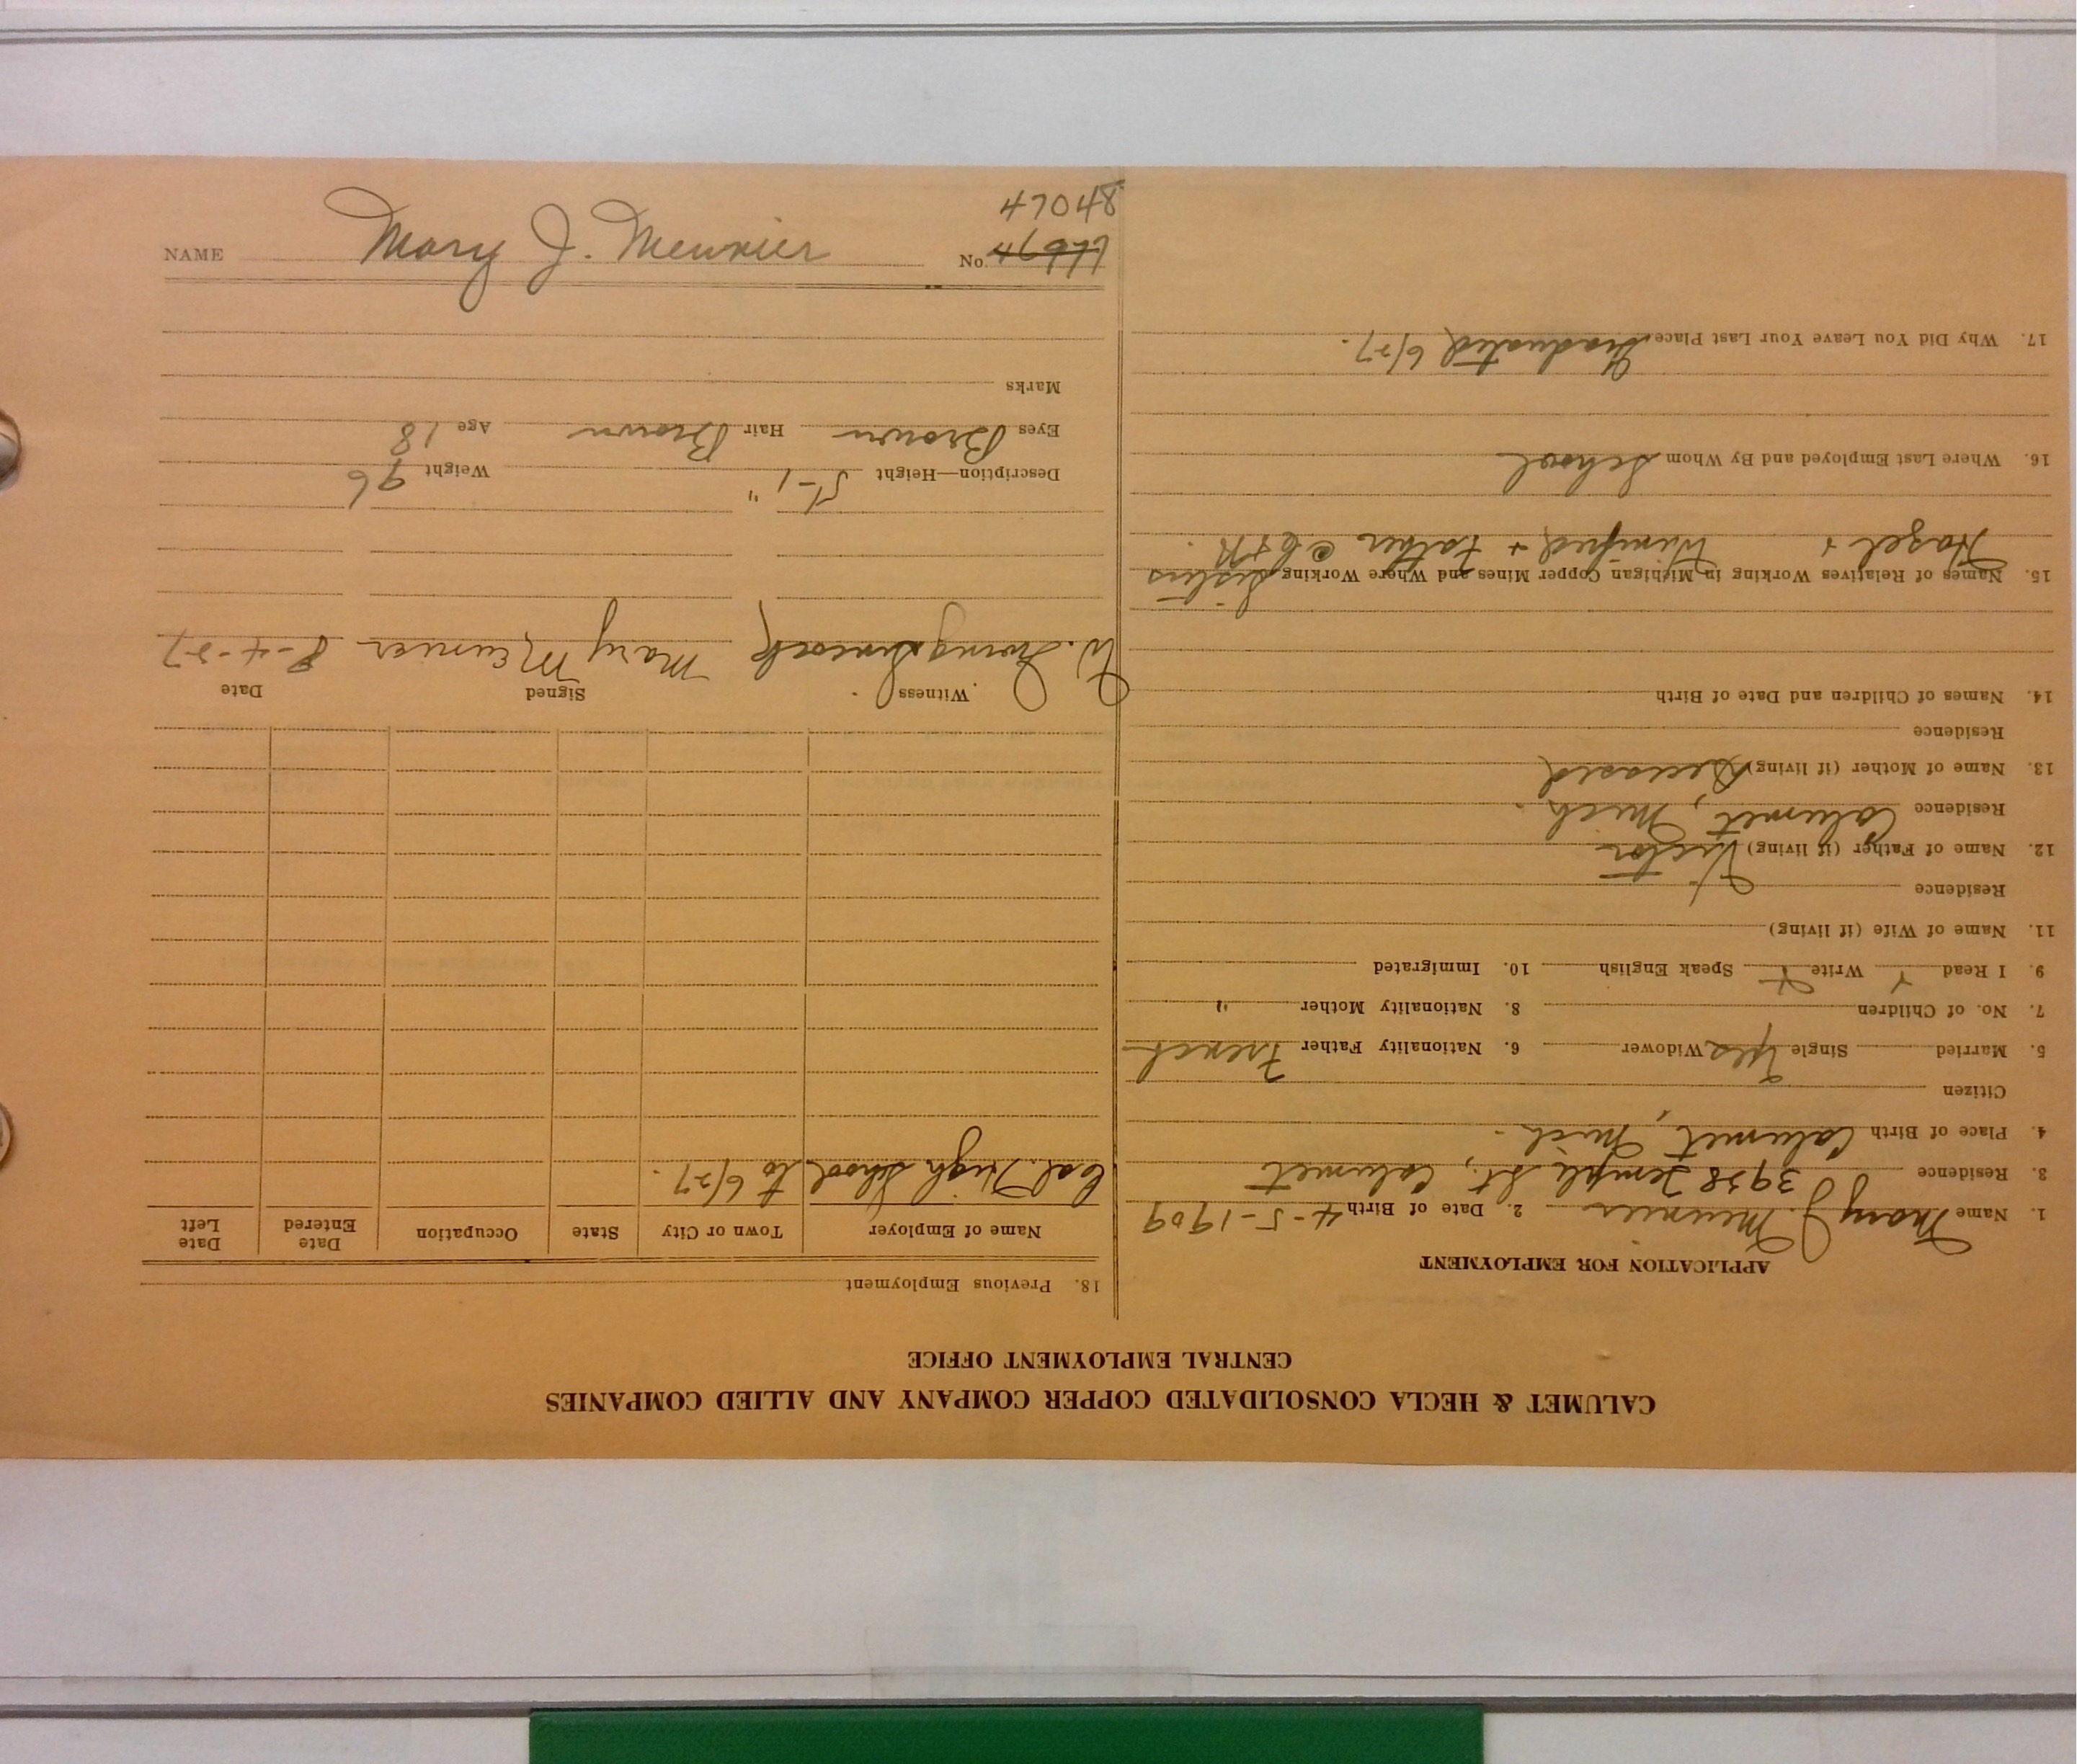 CALUMET & HECLA CONSOLIDATED COPPER COMPANY AND ALLIED COMPANIES
CENTRAL EMPLOYMENT OFFICE
APPLICATION FOR EMPLOYMENT
1. Name Mary J. Meunier 2. Date of Birth 4-5-1909
3. Residence 3938 Temple St., Calumet
4. Place of Birth Calumet, Mich.
Citizen
5. Married Single Yes Widower 6. Nationality Father French
7. No. of Children 8. Nationality Mother "
9. I Read Write Speak English 10. Immigrated
11. Name of Wife (if living)
Residence
12. Name of Father (if living) Victor
Residence Calumet, Mich.
13. Name of Mother (if living) Deceased
Residence
14. Names of Children and Date of Birth
15. Names of Relatives Working in Michigan Copper Mines and Where Working Sisters
Hazel + Winifred + Father C&H.
16. Where Last Employed and By Whom School
17. Why Did You Leave Your Last Place Graduated 6/27.
18. Previous Employment
Name of Employer Town or City State Occupation Date Entered Date Left
Cal. High School to 6/27.
Witness Signed Date
W. Mary Meunier 8-4-27
Description—Height 5'-1" Weight 96
Eyes Brown Hair Brown Age 18
Marks
NAME Mary J. Meunier No.
47048